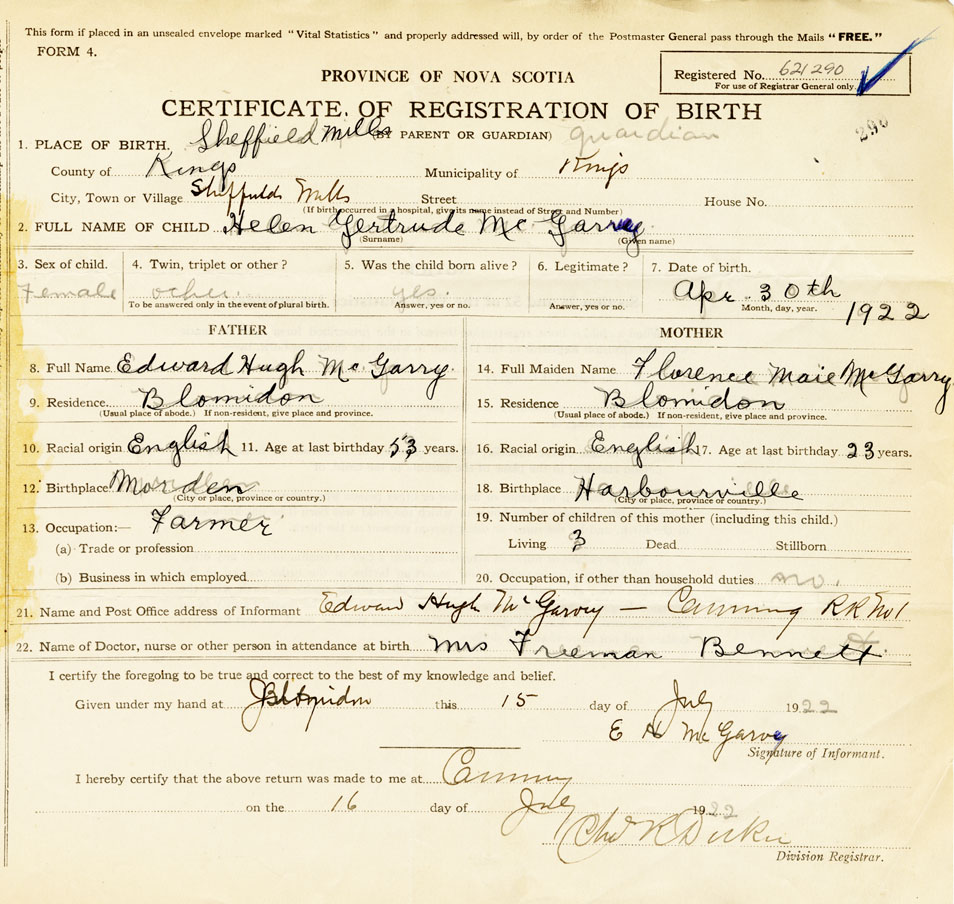 This form if placed in an unsealed envelope marked "Vital Statistics" and properly addressed will, by order of the Postmaster General pass through the Mails "FREE."
FORM 4.
Registered No. 621290
For use of Registrar General only.
PROVINCE OF NOVA SCOTIA
CERTIFICATE OF REGISTRATION OF BIRTH
290
(BY PARENT OR GUARDIAN) guardian
1. PLACE OF BIRTH. Sheffield Mills
County of Kings Municipality of Kings
City, Town or Village Sheffields Mills Street House No.
(If birth occurred in a hospital, give its name instead of Street and Number)
2. FULL NAME OF CHILD Helen Gertrude Mc Garvey
(Surname) (Given name)
3. Sex of child. 4. Twin, triplet or other? 5. Was the child born alive? 6. Legitimate? 7. Date of birth.
Female other. yes. Apr. 30th 1922
To be answered only in the event of plural birth. Answer, yes or no. Answer, yes or no. Month, day, year.
FATHER
8. Full Name Edward Hugh Mc Garry
9. Residence Blomidon
(Usual place of abode.) If non-resident, give place and province.
10. Racial origin English 11. Age at last birthday 53 years.
12. Birthplace Morden
(City or place, province or country.)
13. Occupation:— Farmer
(a) Trade or profession
(b) Business in which employed
MOTHER
14. Full Maiden Name Florence Maie McGarry
15. Residence Blomidon
(Usual place of abode.) If non-resident, give place and province.
16. Racial origin English 17. Age at last birthday 23 years.
18. Birthplace Harbourville
(City or place, province or country.)
19. Number of children of this mother (including this child.)
Living 3 Dead Stillborn
20. Occupation, if other than household duties no.
21. Name and Post Office address of Informant Edward Hugh McGarvey — Canning RR No 1
22. Name of Doctor, nurse or other person in attendance at birth Mrs Freeman Bennett
I certify the foregoing to be true and correct to the best of my knowledge and belief.
Given under my hand at Blomidon this 15 day of July 1922
E H McGarvey
Signature of Informant.
I hereby certify that the above return was made to me at Canning
on the 16 day of July 1922
Division Registrar.